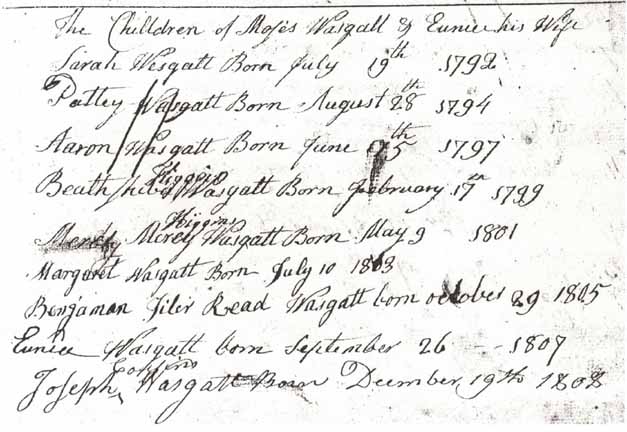 The Children of Moses Wasgatt & Eunice his Wife
Sarah Wesgatt Born July 19th 1792
Pattey Wasgatt Born August 28th 1794
Aaron Wasgatt Born June 25th 1797
Higgins
Beathshiba Wasgatt Born february 17th 1799
Higgins
Mercy Mercy Wasgatt Born May 9 1801
Margaret Wasgatt Born July 10 1803
Benjaman Tiler Read Wasgatt born october 29 1805
Eunice Wasgatt born September 26 -- 1807
Joseph, Wasgatt Born Decmber 19th 1808